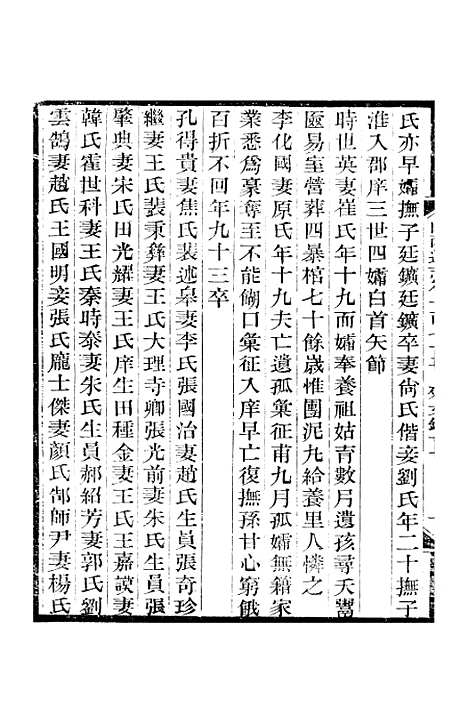 氏亦早孀撫子廷鑛廷鑛卒妻尙氏偕妾劉氏年二十撫子
淮入郡庠三世四孀白首矢節
時世英妻崔氏年十九而孀奉養祖姑育數月遺孩尋夭鬻
匳易室營葬四暴棺七十餘歳惟團泥丸給養里人憐之
李化國妻原氏年十九夫亡遺孤彙征甫九月孤孀無籍家
業悉爲豪奪至不能餬口彙征入庠早亡復撫孫甘心窮餓
百折不回年九十三卒
孔得貴妻焦氏裴述皋妻李氏張國治妻趙氏生員張奇珍
繼妻王氏裴秉彝妻王氏大理寺卿張光前妻朱氏生員張
肇典妻宋氏田光耀妻王氏庠生田種金妻王氏王嘉謨妻
韓氏霍世科妻王氏秦時泰妻朱氏生員郝紹芳妻郭氏劉
雲鵠妻趙氏王國明妾張氏龐士傑妻顏氏郜師尹妻楊氏